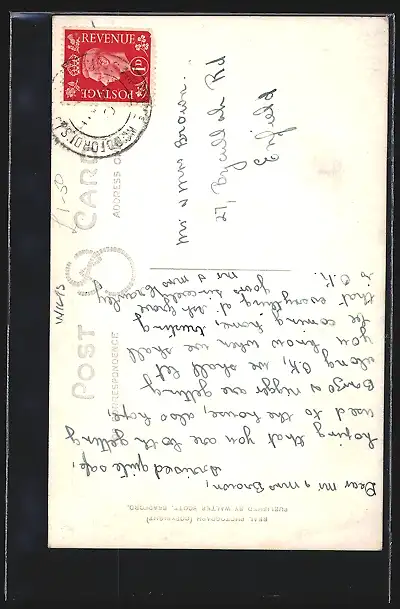 POST CARD
CORRESPONDENCE
ADDRESS O
REAL PHOTOGRAPH (COPYRIGHT)
PUBLISHED BY WALTER SCOTT, BRADFORD.
REVENUE
1D
POSTAGE
BEDFORD ST.
£1-50
W1695
Mr & Mrs Brown
27, Bycullah Rd
Enfield
Dear Mr & Mrs Brown,
Arrived quite safe,
hoping that you are both getting
used to the house, also hope,
Bonzo & nigger are getting
along O.K, we shall let
you know when we shall
be coming home, trusting
that everything at Grove
is O.K. yours sincerely
Mr & Mrs Bramley